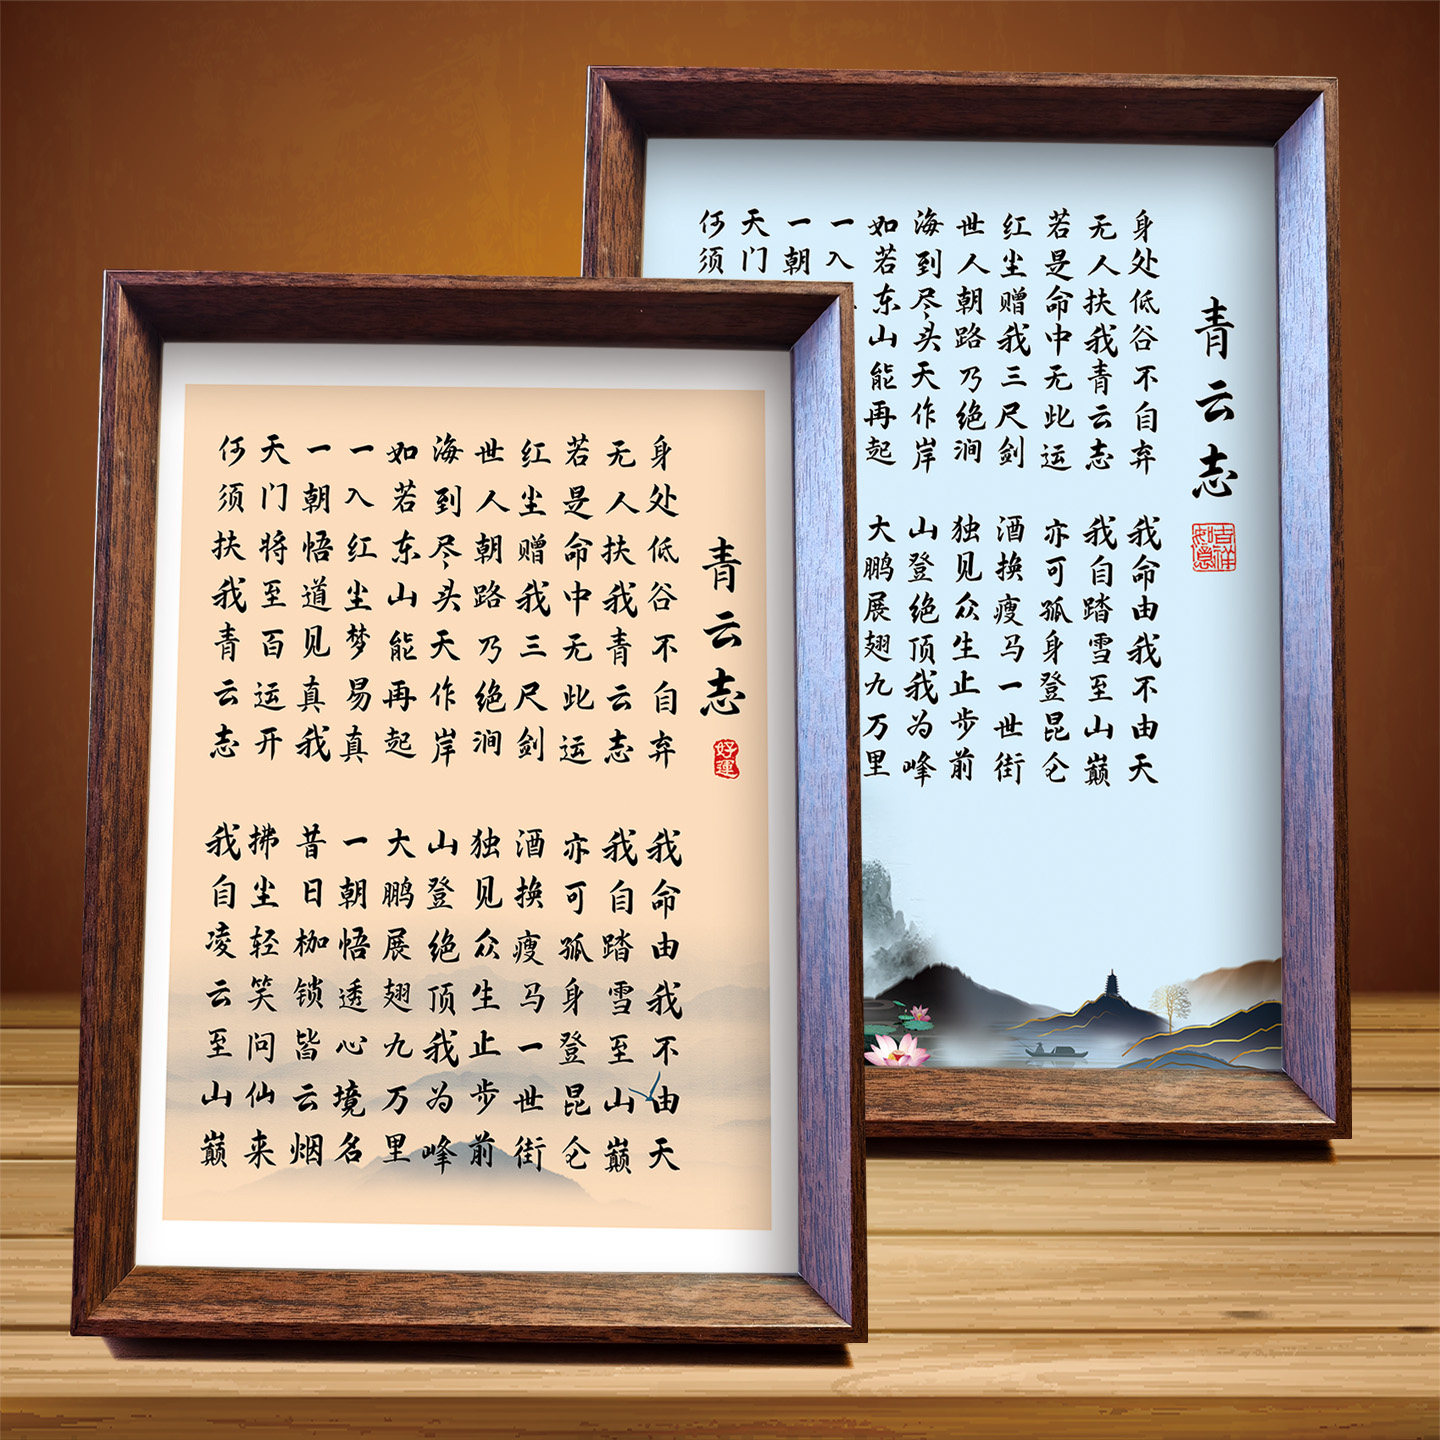 青云志
好運
身处低谷不自弃 我命由我不由天
无人扶我青云志 我自踏雪至山巅
若是命中无此运 亦可孤身登昆仑
红尘赠我三尺剑 酒换瘦马一世街
世人朝路乃绝涧 独见众生止步前
海到尽头天作岸 山登绝顶我为峰
如若东山能再起 大鹏展翅九万里
一入红尘梦易真 一朝悟透心境名
一朝悟道见真我 昔日枷锁皆云烟
天门将至百运开 拂尘轻笑问仙来
何须扶我青云志 我自凌云至山巅
青云志
吉祥如意
身处低谷不自弃 我命由我不由天
无人扶我青云志 我自踏雪至山巅
若是命中无此运 亦可孤身登昆仑
红尘赠我三尺剑 酒换瘦马一世街
世人朝路乃绝涧 独见众生止步前
海到尽头天作岸 山登绝顶我为峰
如若东山能再起 大鹏展翅九万里
一入
一朝
天门
何须